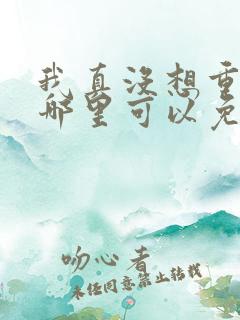 我真没想重
哪里可以免
吻心者
未经同意禁止转载